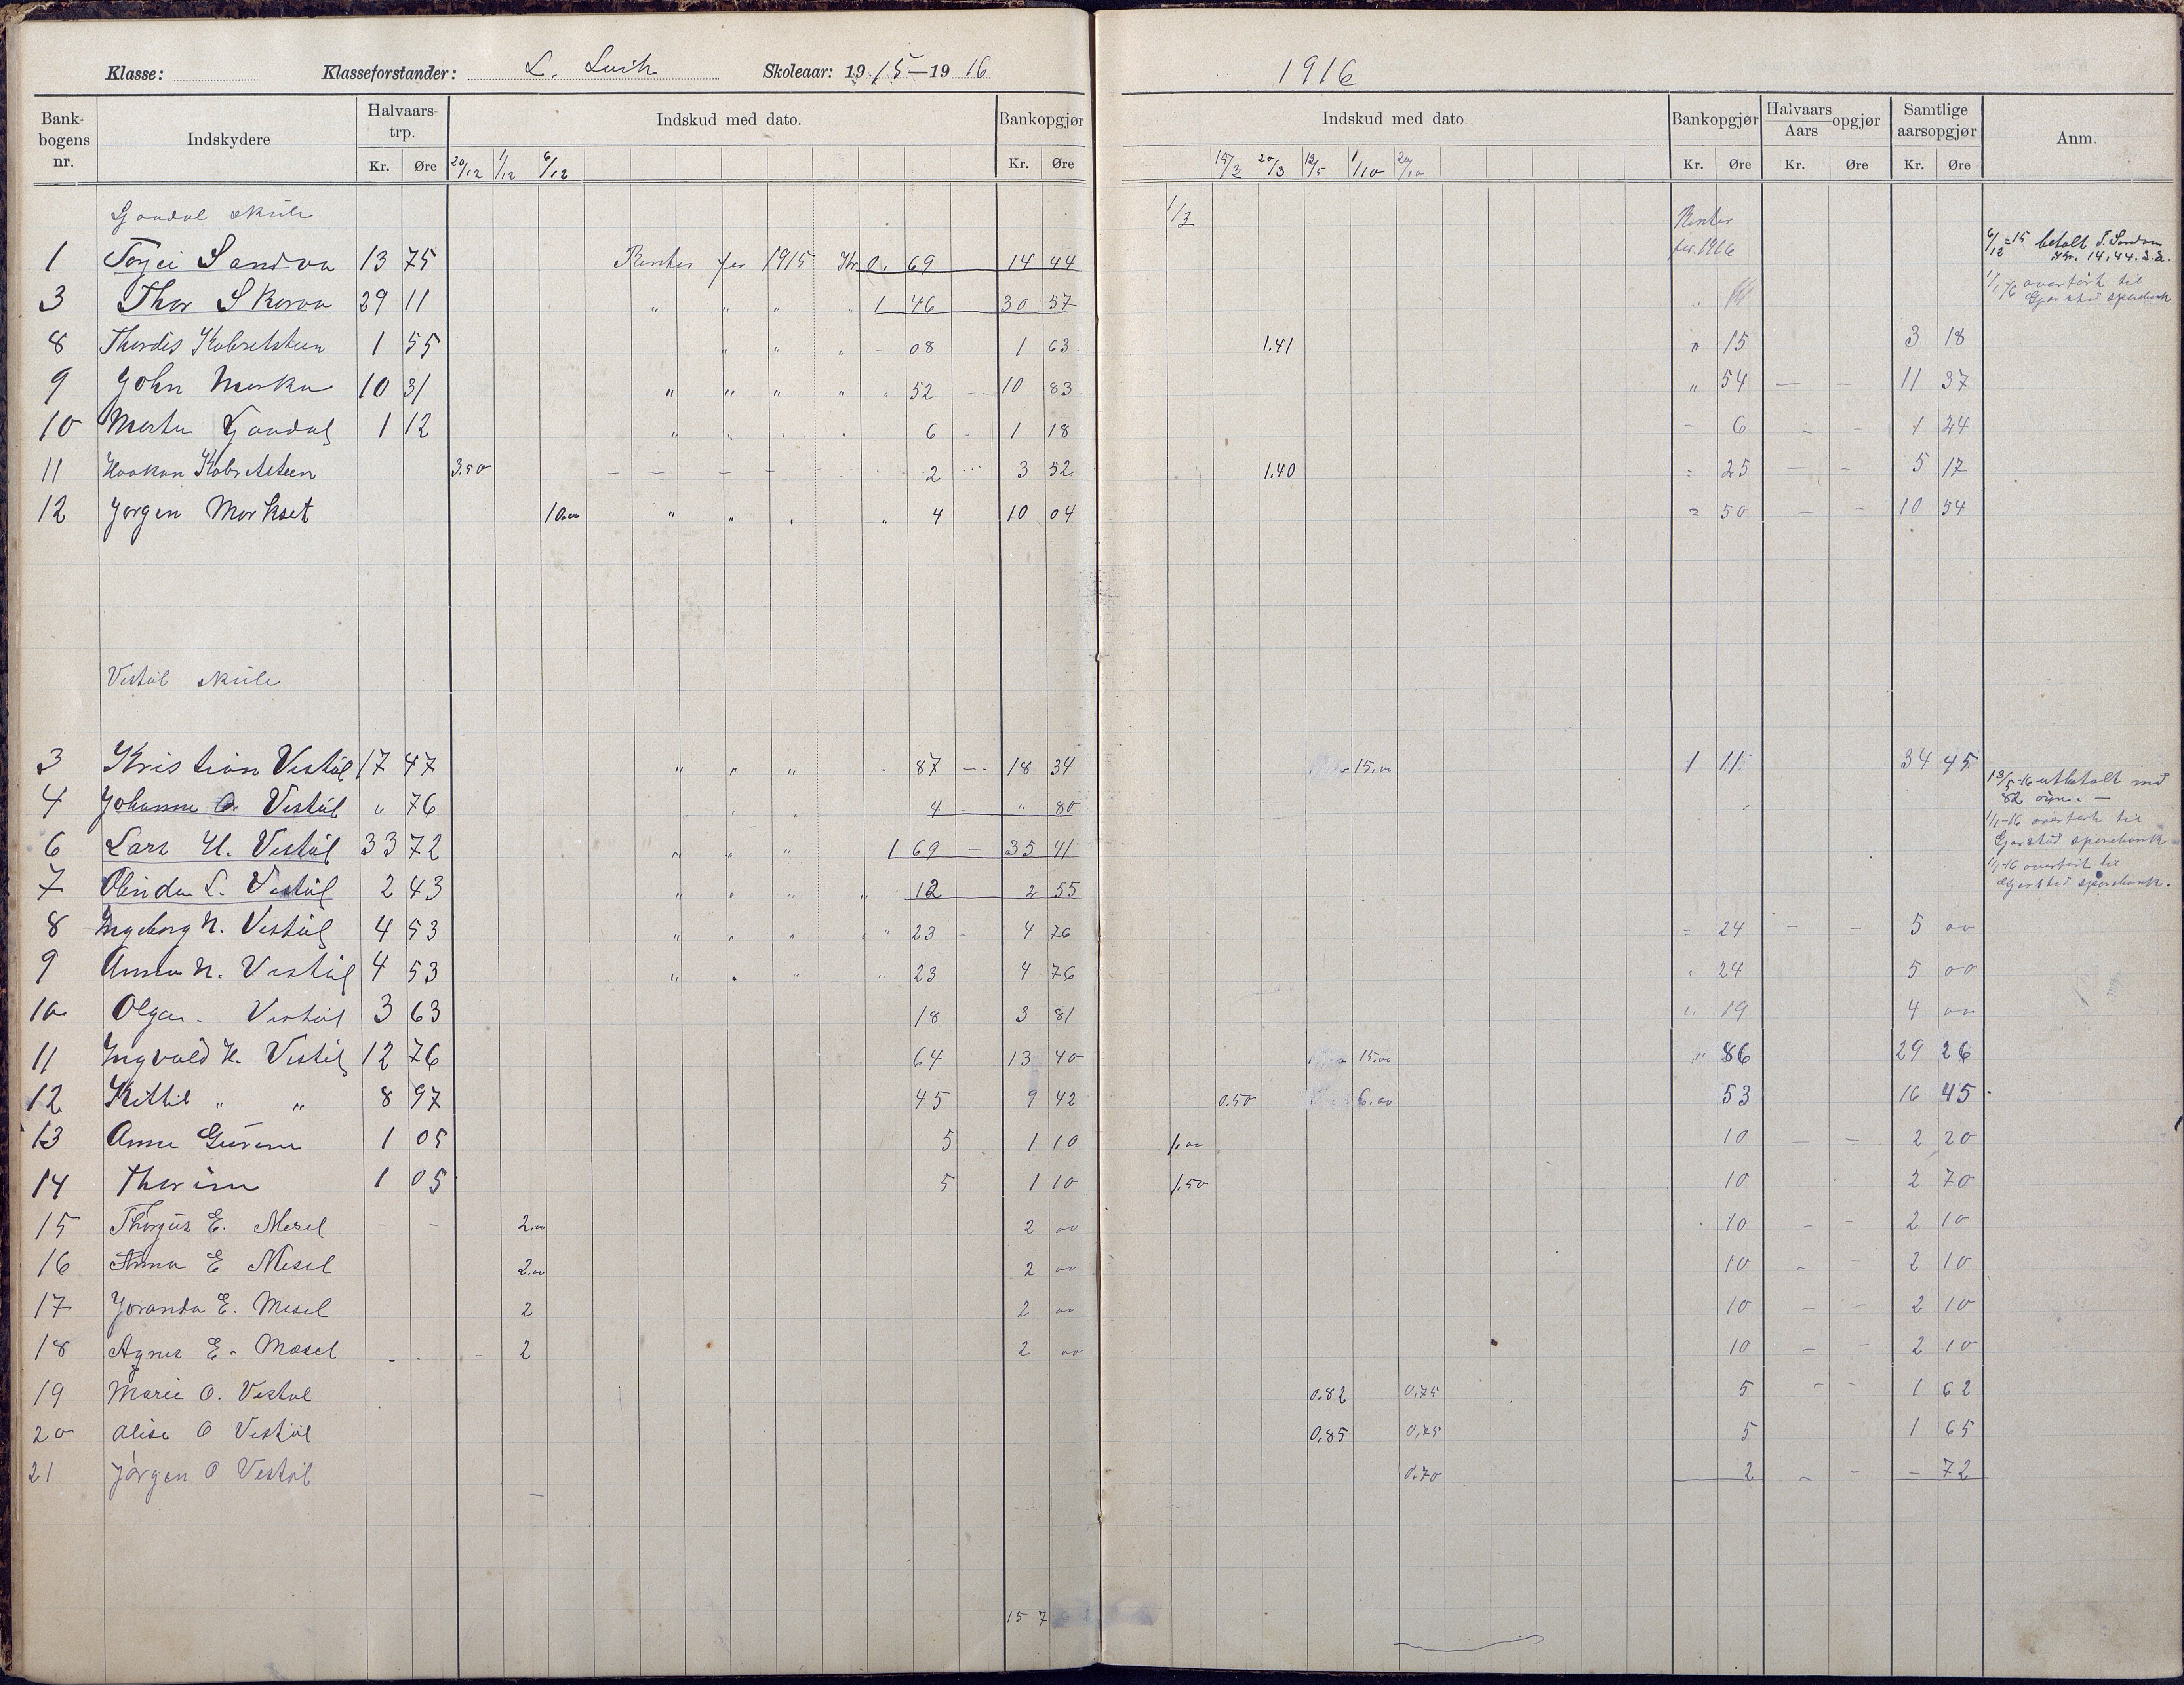 Klasse: Klasseforstander: L. Skoleaar: 1915—1916
Bankbogens nr. Indskydere Halvaarstrp. Kr. Øre Indskud med dato. Bankopgjør Kr. Øre
20/12 1/12 6/12
skule
1 Torjei Sandvn 13 75 Renter for 1915 Kr. 0, 69 14 44
3 Thor Skorvn 29 11 " " " " 1 46 30 57
8 Thordis 1 55 " " " 08 1 63
9 John 10 31 " " " " 52 10 83
10 1 12 " " " " 6 1 18
11 Haakon 3.50 2 3 52
12 Jørgen Morkset 10.00 " " " " 4 10 04
Vestøl skule
3 Kristian Vestøl 17 47 " " " 87 18 34
4 Johanne O. Vestøl " 76 " " " 4 " 80
6 Lars H. Vestøl 33 72 " " " 1 69 35 41
7 L. Vestøl 2 43 " " " " 12 2 55
8 Ingeborg N. Vestøl 4 53 " " " " 23 4 76
9 Anna N. Vestøl 4 53 " " " " 23 4 76
10 Olga Vestøl 3 63 18 3 81
11 Ingvald H. Vestøl 12 76 64 13 40
12 Kittil " " 8 97 45 9 42
13 Anne 1 05 5 1 10
14 1 05 5 1 10
15 Thorjus E. Mesel - - 2.00 2 00
16 Anna E Mesel 2.00 2 00
17 Joranda E. Mesel 2 2 00
18 Agnes E. Mesel - - - 2 2 00
19 Marie O. Vestøl
20 Alise O Vestøl
21 Jørgen O Vestøl
15 7
1916
Indskud med dato. Bankopgjør Kr. Øre Halvaars Aars opgjør Kr. Øre Samtlige aarsopgjør Kr. Øre Anm.
1/3 15/3 20/3 12/5 1/10 20/10
Renter for 1916
6/12-15 betalt T. Sandvn Kr. 14,44.
1/1-16 overført til Gjerstad sparebank
1.41 " 15 3 18
" 54 - - 11 37
- 6 - - 1 24
1.40 " 25 - - 5 17
" 50 - - 10 54
15.00 1 11 34 45
13/5-16 utbetalt med 82 øre. -
1/1-16 overført til Gjerstad sparebank
1/1-16 overført til Gjerstad sparebank.
" 24 - - 5 00
" 24 5 00
" 19 4 00
15.00 " 86 29 26
0.50 6.00 53 16 45
1.00 10 - - 2 20
1.50 10 2 70
10 - - 2 10
10 - - 2 10
10 - - 2 10
10 - - 2 10
0.82 0.75 5 - - 1 62
0.85 0.75 5 1 65
0.70 2 - - - 72